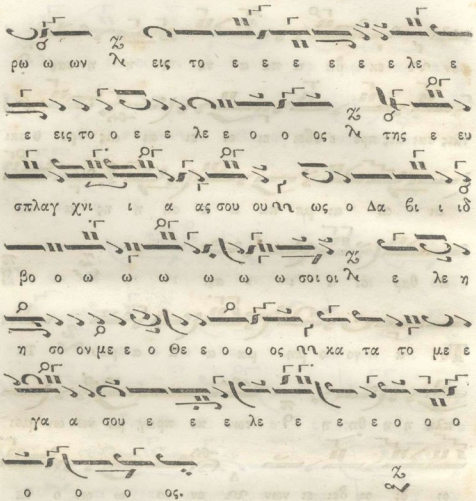 ρω ω ων εις το ε ε ε ε ε ε ε λε ε
ε εις το ο ε ε λε ε ο ο ος της ε ευ
σπλαγ χνι ι α ας σου ου ως ο Δα βι ι ιδ
βο ο ω ω ω ω ω ω σοι οι ε λε η
η σο ον με ε ο Θε ε ο ο ος κα τα το με ε
γα α σου ε ε ε λε ε ε ε ε ο ο ο
ο ο ο ος.